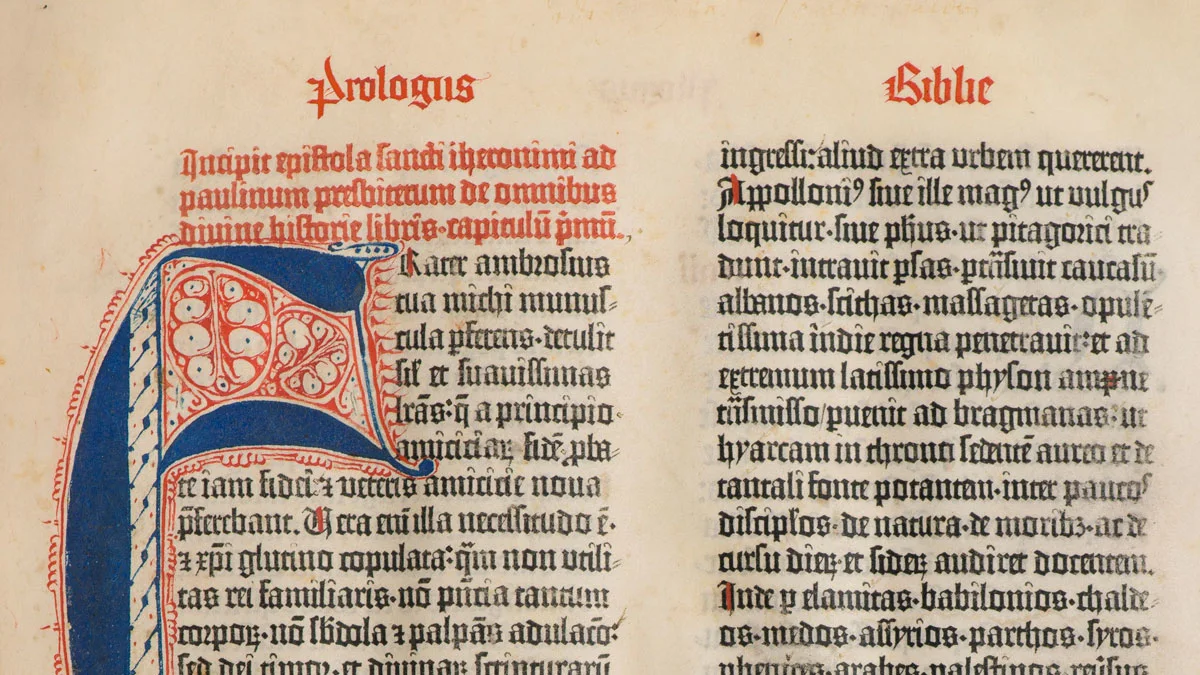 Prologus
Biblie
Incipit epistola sancti iheronimi ad
paulinum presbiterum de omnibus
divine historie libris·capitulū p̄mū.
Frater ambrosius
tua michi munus⸗
cula pferens·detulit
sil̄ et suavissimas
lr̄as:q̄ a principio
amiciciaꝝ fidē ꝓba⸗
te iam fidei ⁊ veteris amicicie nova
p̄ferebant. Vera eni͞ illa necessitudo ē·
⁊ xp̄i glutino copulata:q̄m non utili⸗
tas rei familiaris·nō pn̄cia tantum
corpoꝝ·nō sb̄dola ⁊ palpās adulacō:
sed dei timor·et divinaꝝ scripturarū
ingressi:aliud extra urbem quererent.
Appolloniꝰ sive ille magꝰ ut vulgꝰ
loquitur·sive ph̄us·ut pitagorici tra⸗
dunt·intravit ꝑsas·ptrāsivit caucasū·
albanos·scithas·massagetas·opulē⸗
tissima indie regna penetravit:et ad
extremum latissimo physon ampne
trāsmisso/ꝑvenit ad bragmanas:ut
hyarcam in throno sedentē aureo et de
tantali fonte potantem·inter paucoˢ
discipl̄os·de natura·de moribꝫ·ac de
cursu dieꝝ et sideꝝ audiret docentem.
Inde ꝑ elamitas·babilonios·chalde⸗
os·medos·assyrios·parthos·syros·
phenices·arabes·palestinos·reūsus